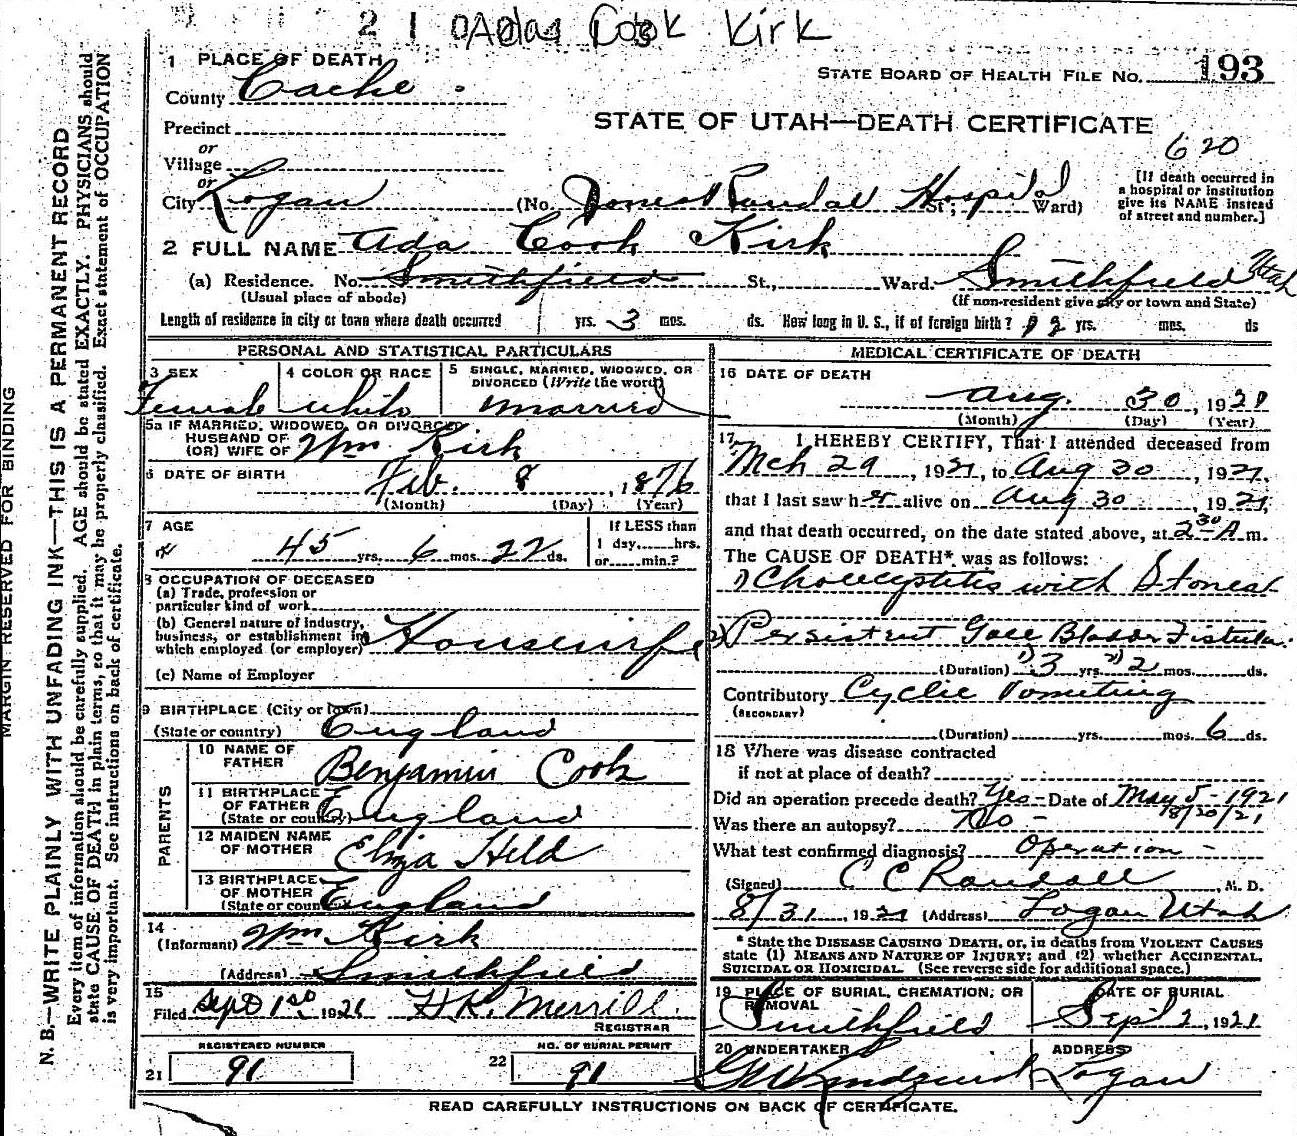 2 1 0 Ada Cook Kirk
1 PLACE OF DEATH
County Cache
STATE BOARD OF HEALTH FILE NO. 193
Precinct
STATE OF UTAH—DEATH CERTIFICATE
620
or
Village
or
City Logan (No. Jones Randal Hospital St; Ward)
[If death occurred in
a hospital or institution
give its NAME instead
of street and number.]
2 FULL NAME Ada Cook Kirk
(a) Residence. No. Smithfield St., Ward. Smithfield Utah
(Usual place of abode) (If non-resident give city or town and State)
Length of residence in city or town where death occurred yrs. 3 mos. ds. How long in U. S., if of foreign birth? yrs. mos. ds
PERSONAL AND STATISTICAL PARTICULARS
3 SEX Female
4 COLOR OR RACE white
5 SINGLE, MARRIED, WIDOWED, OR
DIVORCED (Write the word)
married
5a IF MARRIED, WIDOWED, OR DIVORCED
HUSBAND OF
(OR) WIFE OF Wm Kirk
6 DATE OF BIRTH Feb. 8, 1876
(Month) (Day) (Year)
7 AGE 45 yrs. 6 mos. 22 ds.
If LESS than
1 day,.....hrs.
or.....min.?
8 OCCUPATION OF DECEASED
(a) Trade, profession or
particular kind of work
(b) General nature of industry,
business, or establishment in
which employed (or employer) Housewife
(c) Name of Employer
9 BIRTHPLACE (City or town)
(State or country) England
PARENTS
10 NAME OF
FATHER Benjamin Cook
11 BIRTHPLACE
OF FATHER
(State or country) England
12 MAIDEN NAME
OF MOTHER Eliza Held
13 BIRTHPLACE
OF MOTHER
(State or country) England
14
(Informant) Wm Kirk
(Address) Smithfield
15
Filed Sept 1st 1921 H.K. Merrill
REGISTRAR
REGISTERED NUMBER
21 91
NO. OF BURIAL PERMIT
22 91
MEDICAL CERTIFICATE OF DEATH
16 DATE OF DEATH
Aug. 30, 1921
(Month) (Day) (Year)
17 I HEREBY CERTIFY, That I attended deceased from
Mch 29, 1921, to Aug 30, 1921,
that I last saw her alive on Aug 30, 1921,
and that death occurred, on the date stated above, at 2 30 A m.
The CAUSE OF DEATH* was as follows:
1) Cholecystitis with Stones
2) Persistent Gall Bladder Fistula
(Duration) 1) 3 yrs. 2) 2 mos. ds.
Contributory Cyclic Vomiting
(SECONDARY)
(Duration) yrs. mos. 6 ds.
18 Where was disease contracted
if not at place of death?
Did an operation precede death? Yes - Date of May 5-1921
8/20/21
Was there an autopsy? No -
What test confirmed diagnosis? Operation -
(Signed) C C Randall, M. D.
8/31, 1921 (Address) Logan Utah
* State the DISEASE CAUSING DEATH, or, in deaths from VIOLENT CAUSES
state (1) MEANS AND NATURE OF INJURY; and (2) whether ACCIDENTAL,
SUICIDAL OR HOMICIDAL. (See reverse side for additional space.)
19 PLACE OF BURIAL, CREMATION, OR
REMOVAL
Smithfield
DATE OF BURIAL
Sept 2, 1921
20 UNDERTAKER
ADDRESS
Logan
READ CAREFULLY INSTRUCTIONS ON BACK OF CERTIFICATE.
MARGIN RESERVED FOR BINDING
N. B.—WRITE PLAINLY WITH UNFADING INK—THIS IS A PERMANENT RECORD
Every item of information should be carefully supplied. AGE should be stated EXACTLY. PHYSICIANS should
state CAUSE OF DEATH in plain terms, so that it may be properly classified. Exact statement of OCCUPATION
is very important. See instructions on back of certificate.